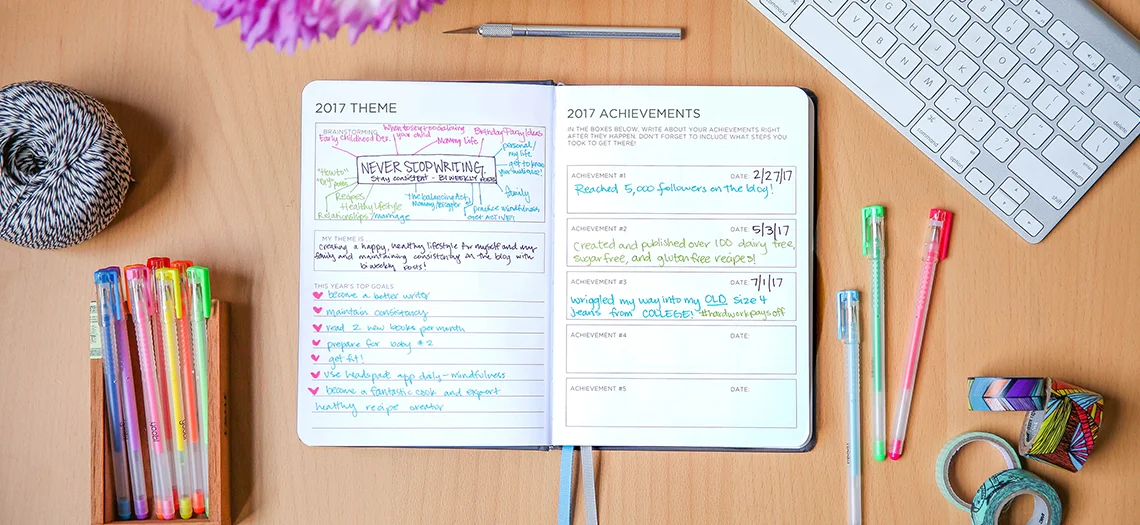 2017 THEME
BRAINSTORMING
Early childhood Dev.
your child
Mommy life
Birthday/Party Ideas
personal/
my life
get to know
NEVER STOP WRITING.
Stay consistent - BI WEEKLY posts
"How to"
Recipes
Healthy lifestyle
Relationships/marriage
The balancing Act;
Mommy/blogger
family
practice mindfulness
MY THEME IS
Creating a happy, healthy lifestyle for myself and my
family and maintaining consistency on the blog with
biweekly posts!
THIS YEAR'S TOP GOALS
become a better writer
maintain consistency
read 2 new books per month
prepare for baby #2
get fit!
use headspace app daily - mindfulness
become a fantastic cook and expert
healthy recipe creator
2017 ACHIEVEMENTS
IN THE BOXES BELOW, WRITE ABOUT YOUR ACHIEVEMENTS RIGHT
AFTER THEY HAPPEN. DON'T FORGET TO INCLUDE WHAT STEPS YOU
TOOK TO GET THERE!
ACHIEVEMENT #1 DATE: 2/27/17
Reached 5,000 followers on the blog!
ACHIEVEMENT #2 DATE: 5/3/17
Created and published over 100 dairy free,
sugar free, and gluten free recipes!
ACHIEVEMENT #3 DATE: 7/1/17
wriggled my way into my OLD size 4
jeans from COLLEGE! #hardworkpaysoff
ACHIEVEMENT #4 DATE:
ACHIEVEMENT #5 DATE:
command
option
control
command
option
return
shift